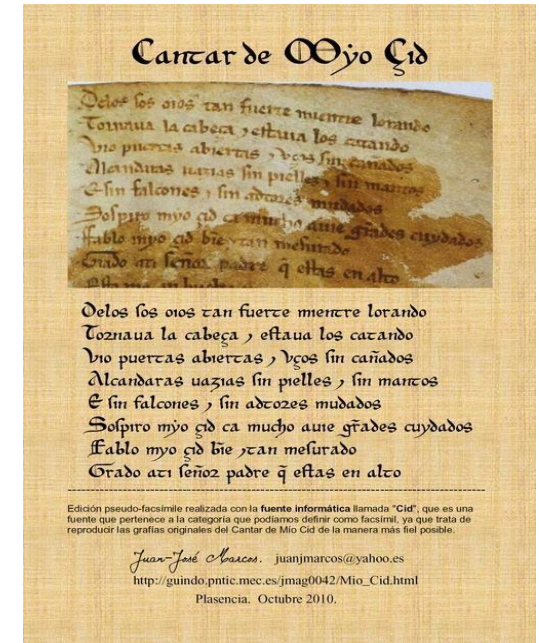 Cantar de Myo Çid
Delos sos oios tan fuerte mientre lorando
Tornaua la cabeça ⁊ estaua los catando
Vio puertas abiertas ⁊ vços sin cañados
Alcandaras uazias sin pielles ⁊ sin mantos
E sin falcones ⁊ sin adtores mudados
Sospiro myo çid ca mucho auie grãdes cuydados
Fablo myo çid bie ⁊ tan mesurado
Grado ati señor padre q̃ estas en alto
Delos sos oios tan fuerte mientre lorando
Tornaua la cabeça ⁊ estaua los catando
Vio puertas abiertas ⁊ Vços sin cañados
Alcandaras uazias sin pielles ⁊ sin mantos
E sin falcones ⁊ sin adtores mudados
Sospiro mẏo çid ca mucho auie gr̃ades cuydados
Fablo myo çid bĩe ⁊tan mesurado
Grado ati señor padre q̃ estas en alto
Edición pseudo-facsímile realizada con la fuente informática llamada "Cid", que es una
fuente que pertenece a la categoría que podíamos definir como facsímil, ya que trata de
reproducir las grafías originales del Cantar de Mío Cid de la manera más fiel posible.
Juan-José Marcos. juanjmarcos@yahoo.es
http://guindo.pntic.mec.es/jmag0042/Mio_Cid.html
Plasencia. Octubre 2010.